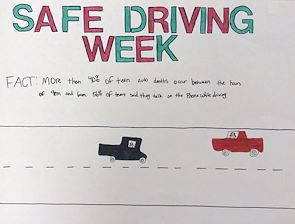 SAFE DRIVING
WEEK
FACT: More than 40% of teen auto deaths occur between the hours
of 9pm and 6am. 56% of teens said they talk on the phone while driving